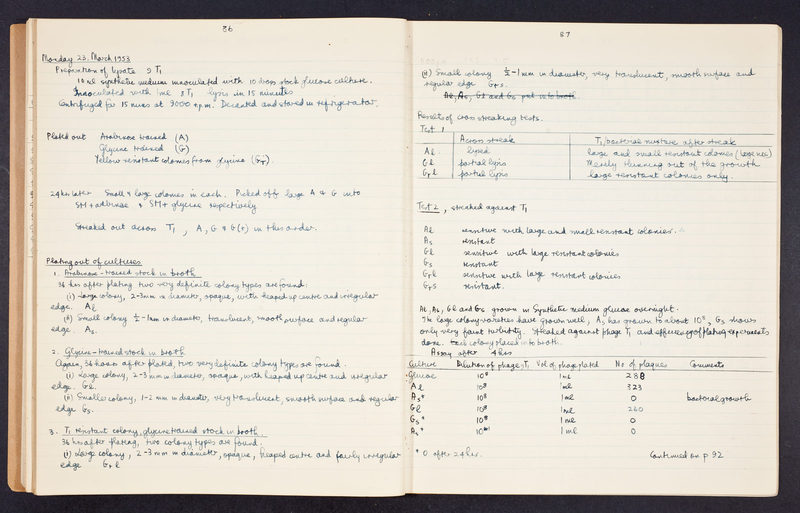 86
Monday 23. March 1953
Preparation of lysate of T1
10 ml synthetic medium innoculated with 10 drops stock glucose culture.
Innoculated with 1ml of T1 lysis in 15 minutes
Centrifuged for 15 mins at 3000 r.p.m. Decanted and stored in refrigerator.
Plated out Arabinose trained (A)
Glycine trained (G)
Yellow resistant colonies from glycine (Gr).
24 hrs later Small & large colonies in each. Picked off large A & G into
SM + arabinose & SM + glycine respectively
Streaked out across T1, A, G & G(r) in this order.
Plating out of cultures
1. Arabinose-trained stock in broth
36 hrs after plating two very definite colony types are found.
(i) Large colony, 2-3mm in diameter, opaque, with heaped up centre and irregular
edge. Al
(ii) Small colony ½-1mm in diameter, translucent, smooth surface and regular
edge. As.
2. Glycine-trained stock in broth
Again, 36 hours after plated, two very definite colony types are found.
(i) Large colony, 2-3mm in diameter, opaque, with heaped up centre and irregular
edge. Gl.
(ii) Smaller colony, 1-2 mm in diameter, very translucent, smooth surface and regular
edge Gs.
3. T1 resistant colony, glycine trained stock in broth.
36 hrs after plating, two colony types are found.
(i) Large colony, 2-3mm in diameter, opaque, heaped centre and fairly irregular
edge Gr l
87
(ii) Small colony ½-1mm in diameter, very translucent, smooth surface and
regular edge Gr s.
Al, As, Gl and Gs put into broth.
Results of cross streaking tests.
Test 1
Across streak T1/bacterial mixture after streak
Al. lysed large and small resistant colonies (
Gl partial lysis Merely thinning out of the growth
Gr l partial lysis large resistant colonies only.
Test 2, streaked against T1
Al sensitive with large and small resistant colonies.
As resistant
Gl sensitive with large resistant colonies
Gs resistant
Gr l sensitive with large resistant colonies
Gr s resistant.
Al, As, Gl and Gs grown in Synthetic medium glucose overnight.
The large colony varieties have grown well, As has grown to about 10⁸, Gs shows
only very faint turbidity. Streaked against phage T1 and efficiency of plating experiments
done. colony placed into broth.
Assay after 4 hrs
Culture Dilution of phage T1 Vol. of phage plated No of plaques Comments
Glucose 10⁸ 1ml 288
Al 10⁸ 1ml 323
As* 10⁸ 1ml 0 bacterial growth
Gl 10⁸ 1ml 260
Gs* 10⁸ 1ml 0
As* 1ml 0
* 0 after 24 hrs.
Continued on p 92